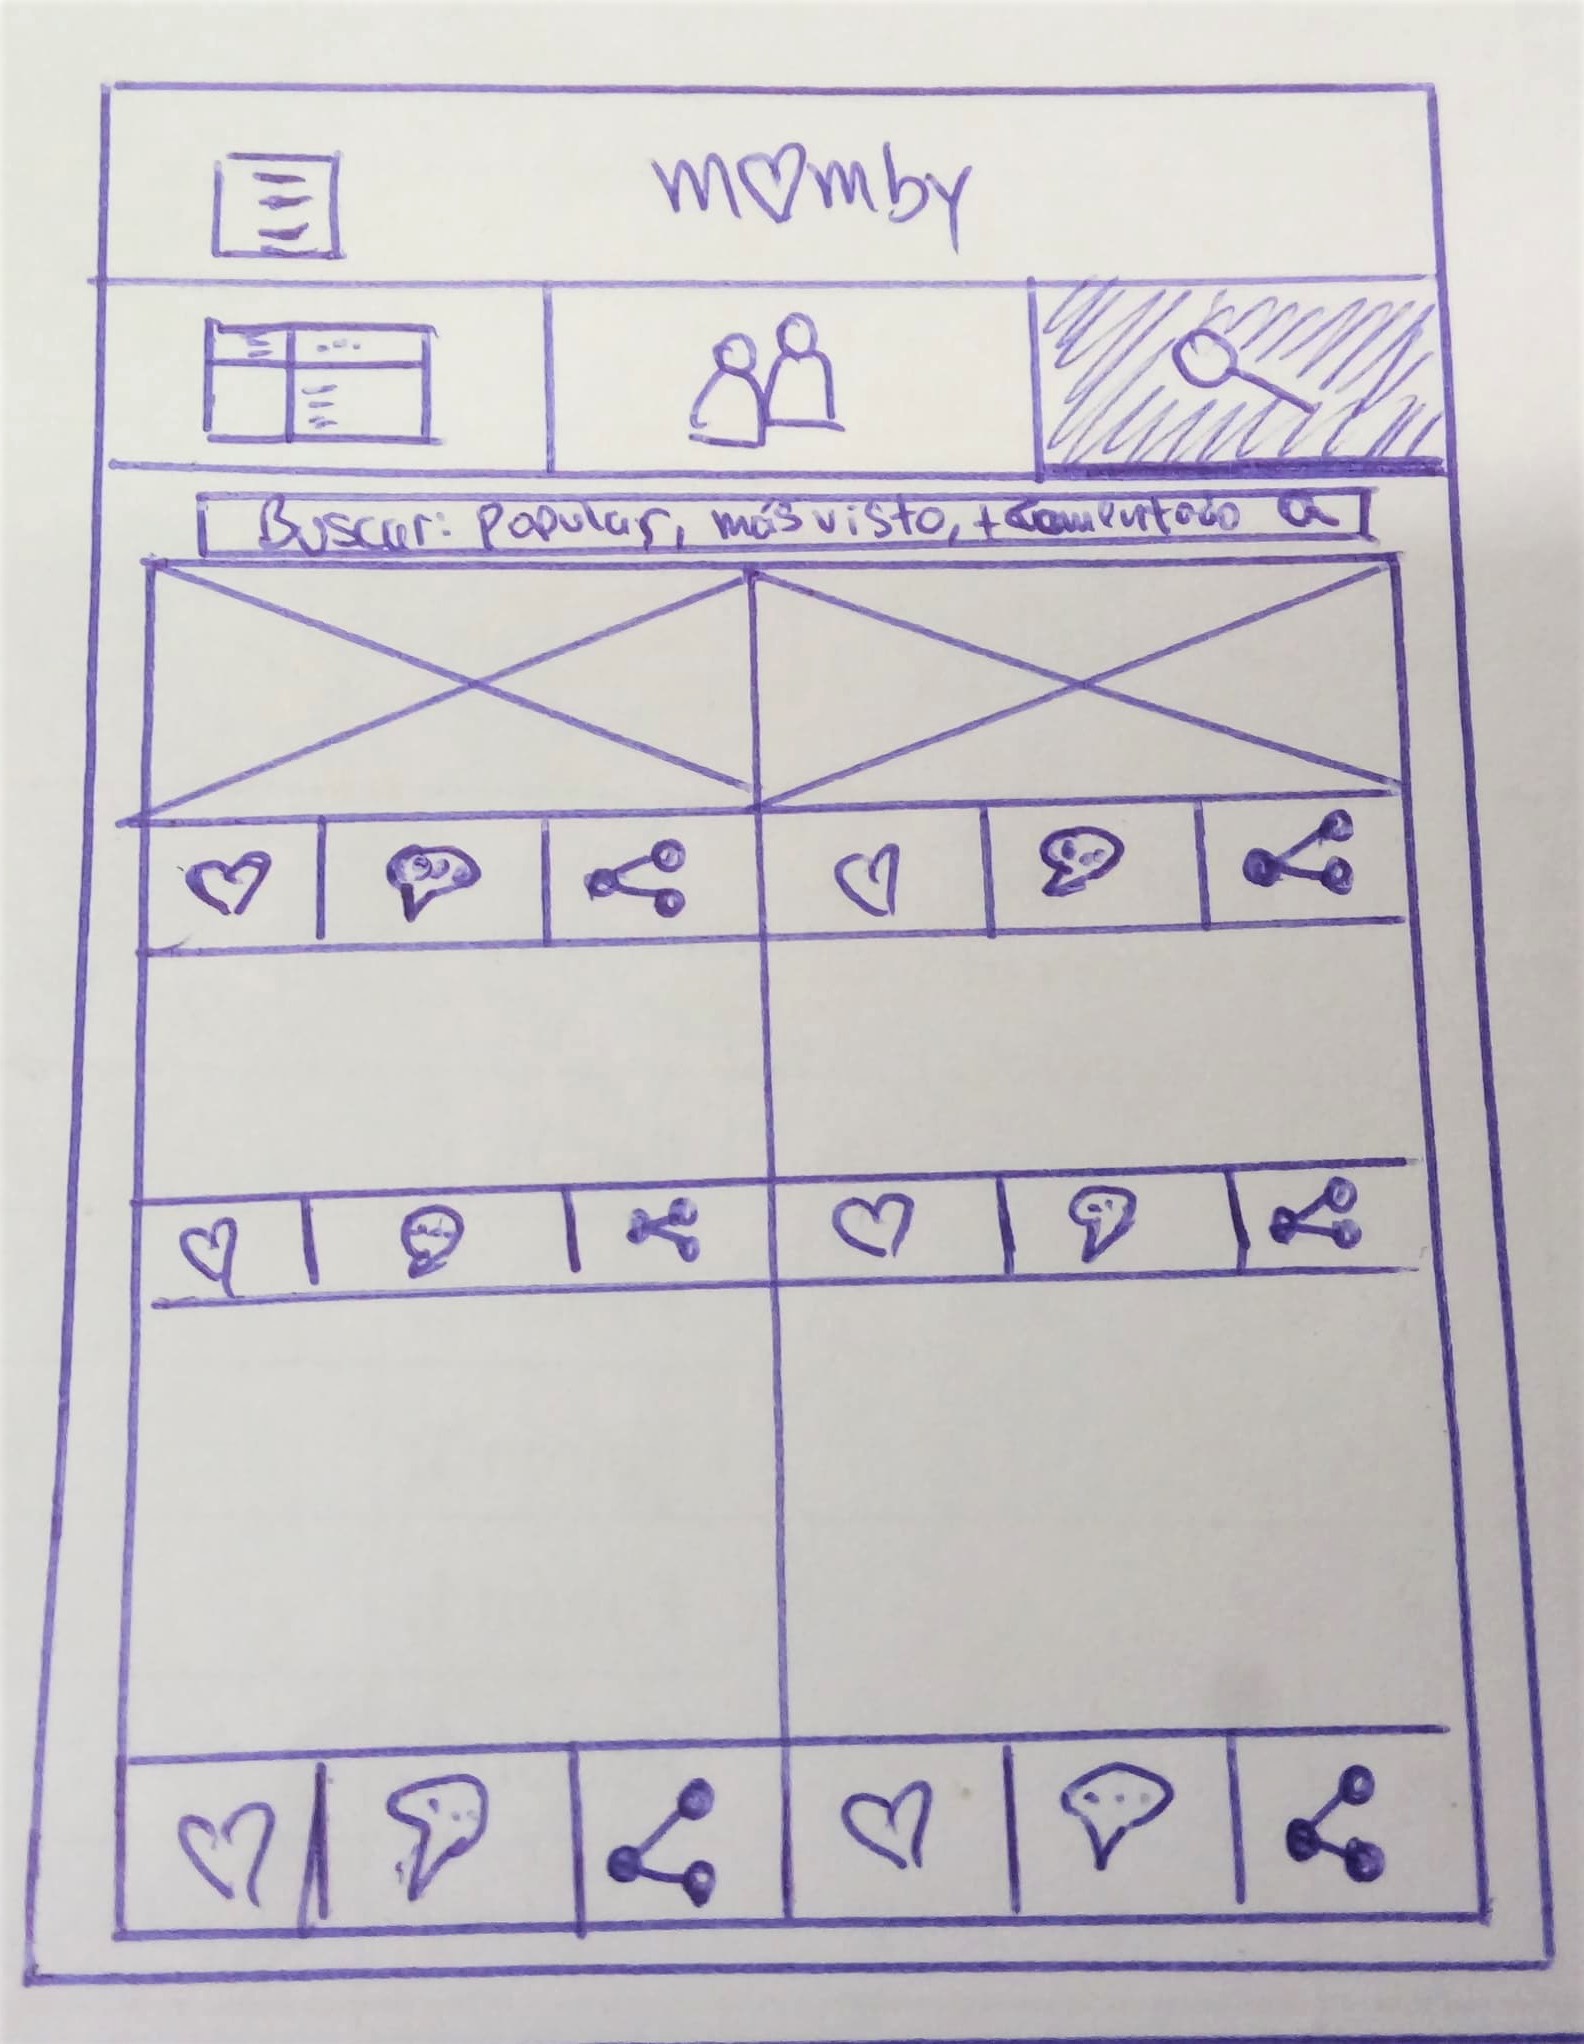 m♡mby
Buscar: popular, más visto, + comentado